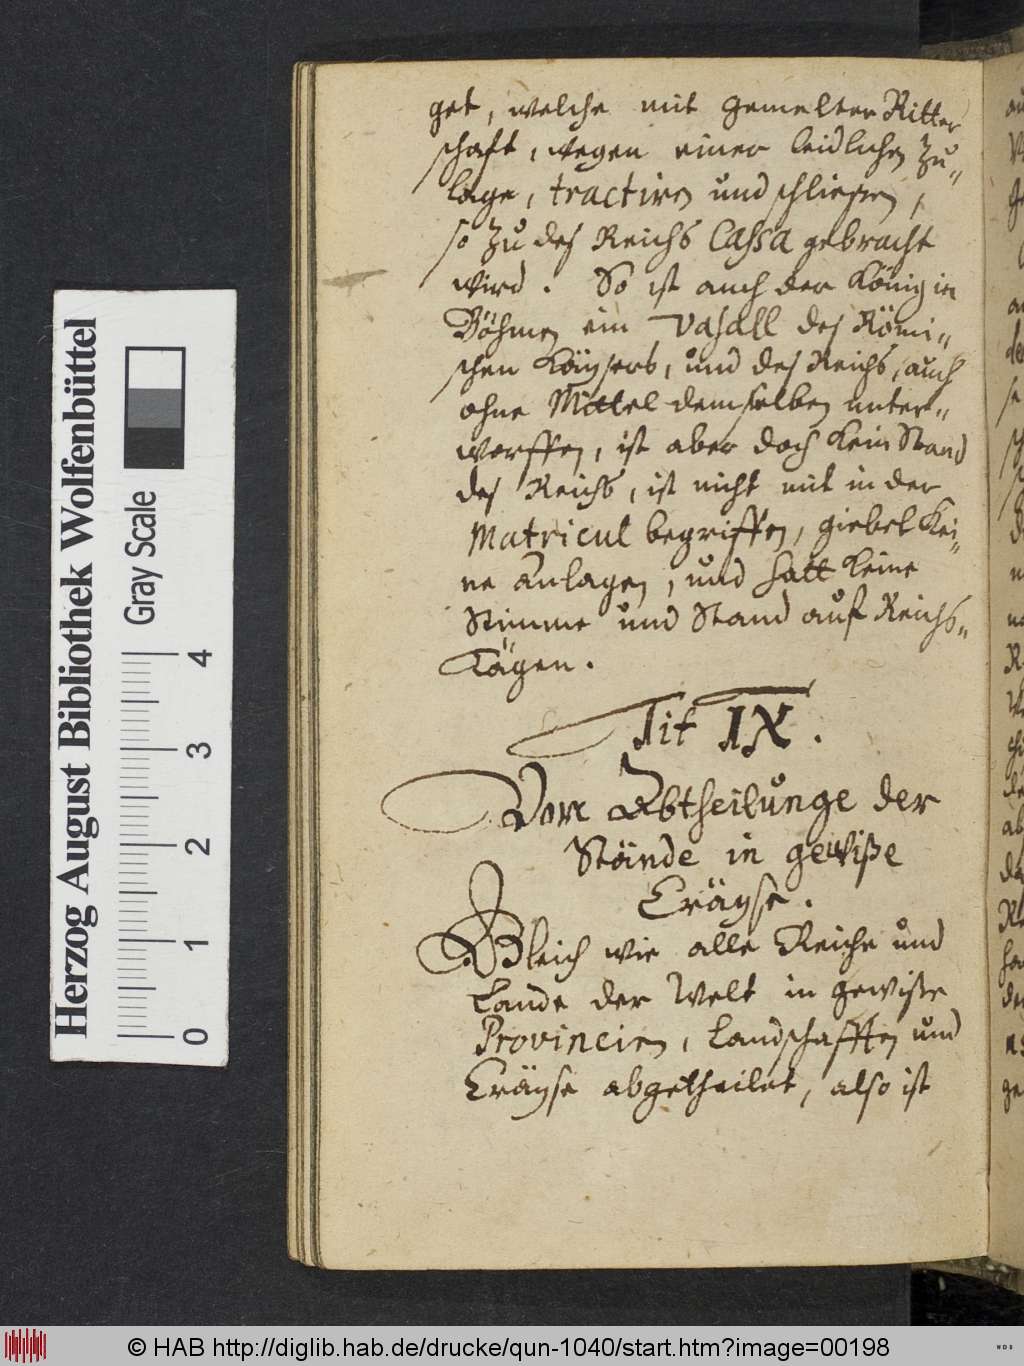 get, welche mit gemelter Ritter
schaft, wegen einer leidlichen Zu„
lage, tractiren und schließen,
so zu des Reichs Cassa gebracht
wird. So ist auch der König in
Böhmen ein Vasall des Römi„
schen Käysers, und des Reichs, auch
ohne Mittel demselben unter„
worffen, ist aber doch kein Stand
des Reichs, ist nicht mit in der
Matricul begriffen, giebet kei„
ne Anlagen, und hatt keine
Stimme und Stand auf Reichs„
Tägen.
Tit IX.
Von Abtheilunge der
Stände in gewiße
Cräyse.
Gleich wie alle Reiche und
Lande der Welt in gewiße
Provincien, Landschafften und
Cräyse abgetheilet, also ist
Herzog August Bibliothek Wolfenbüttel
Gray Scale
0 1 2 3 4
© HAB http://diglib.hab.de/drucke/qun-1040/start.htm?image=00198